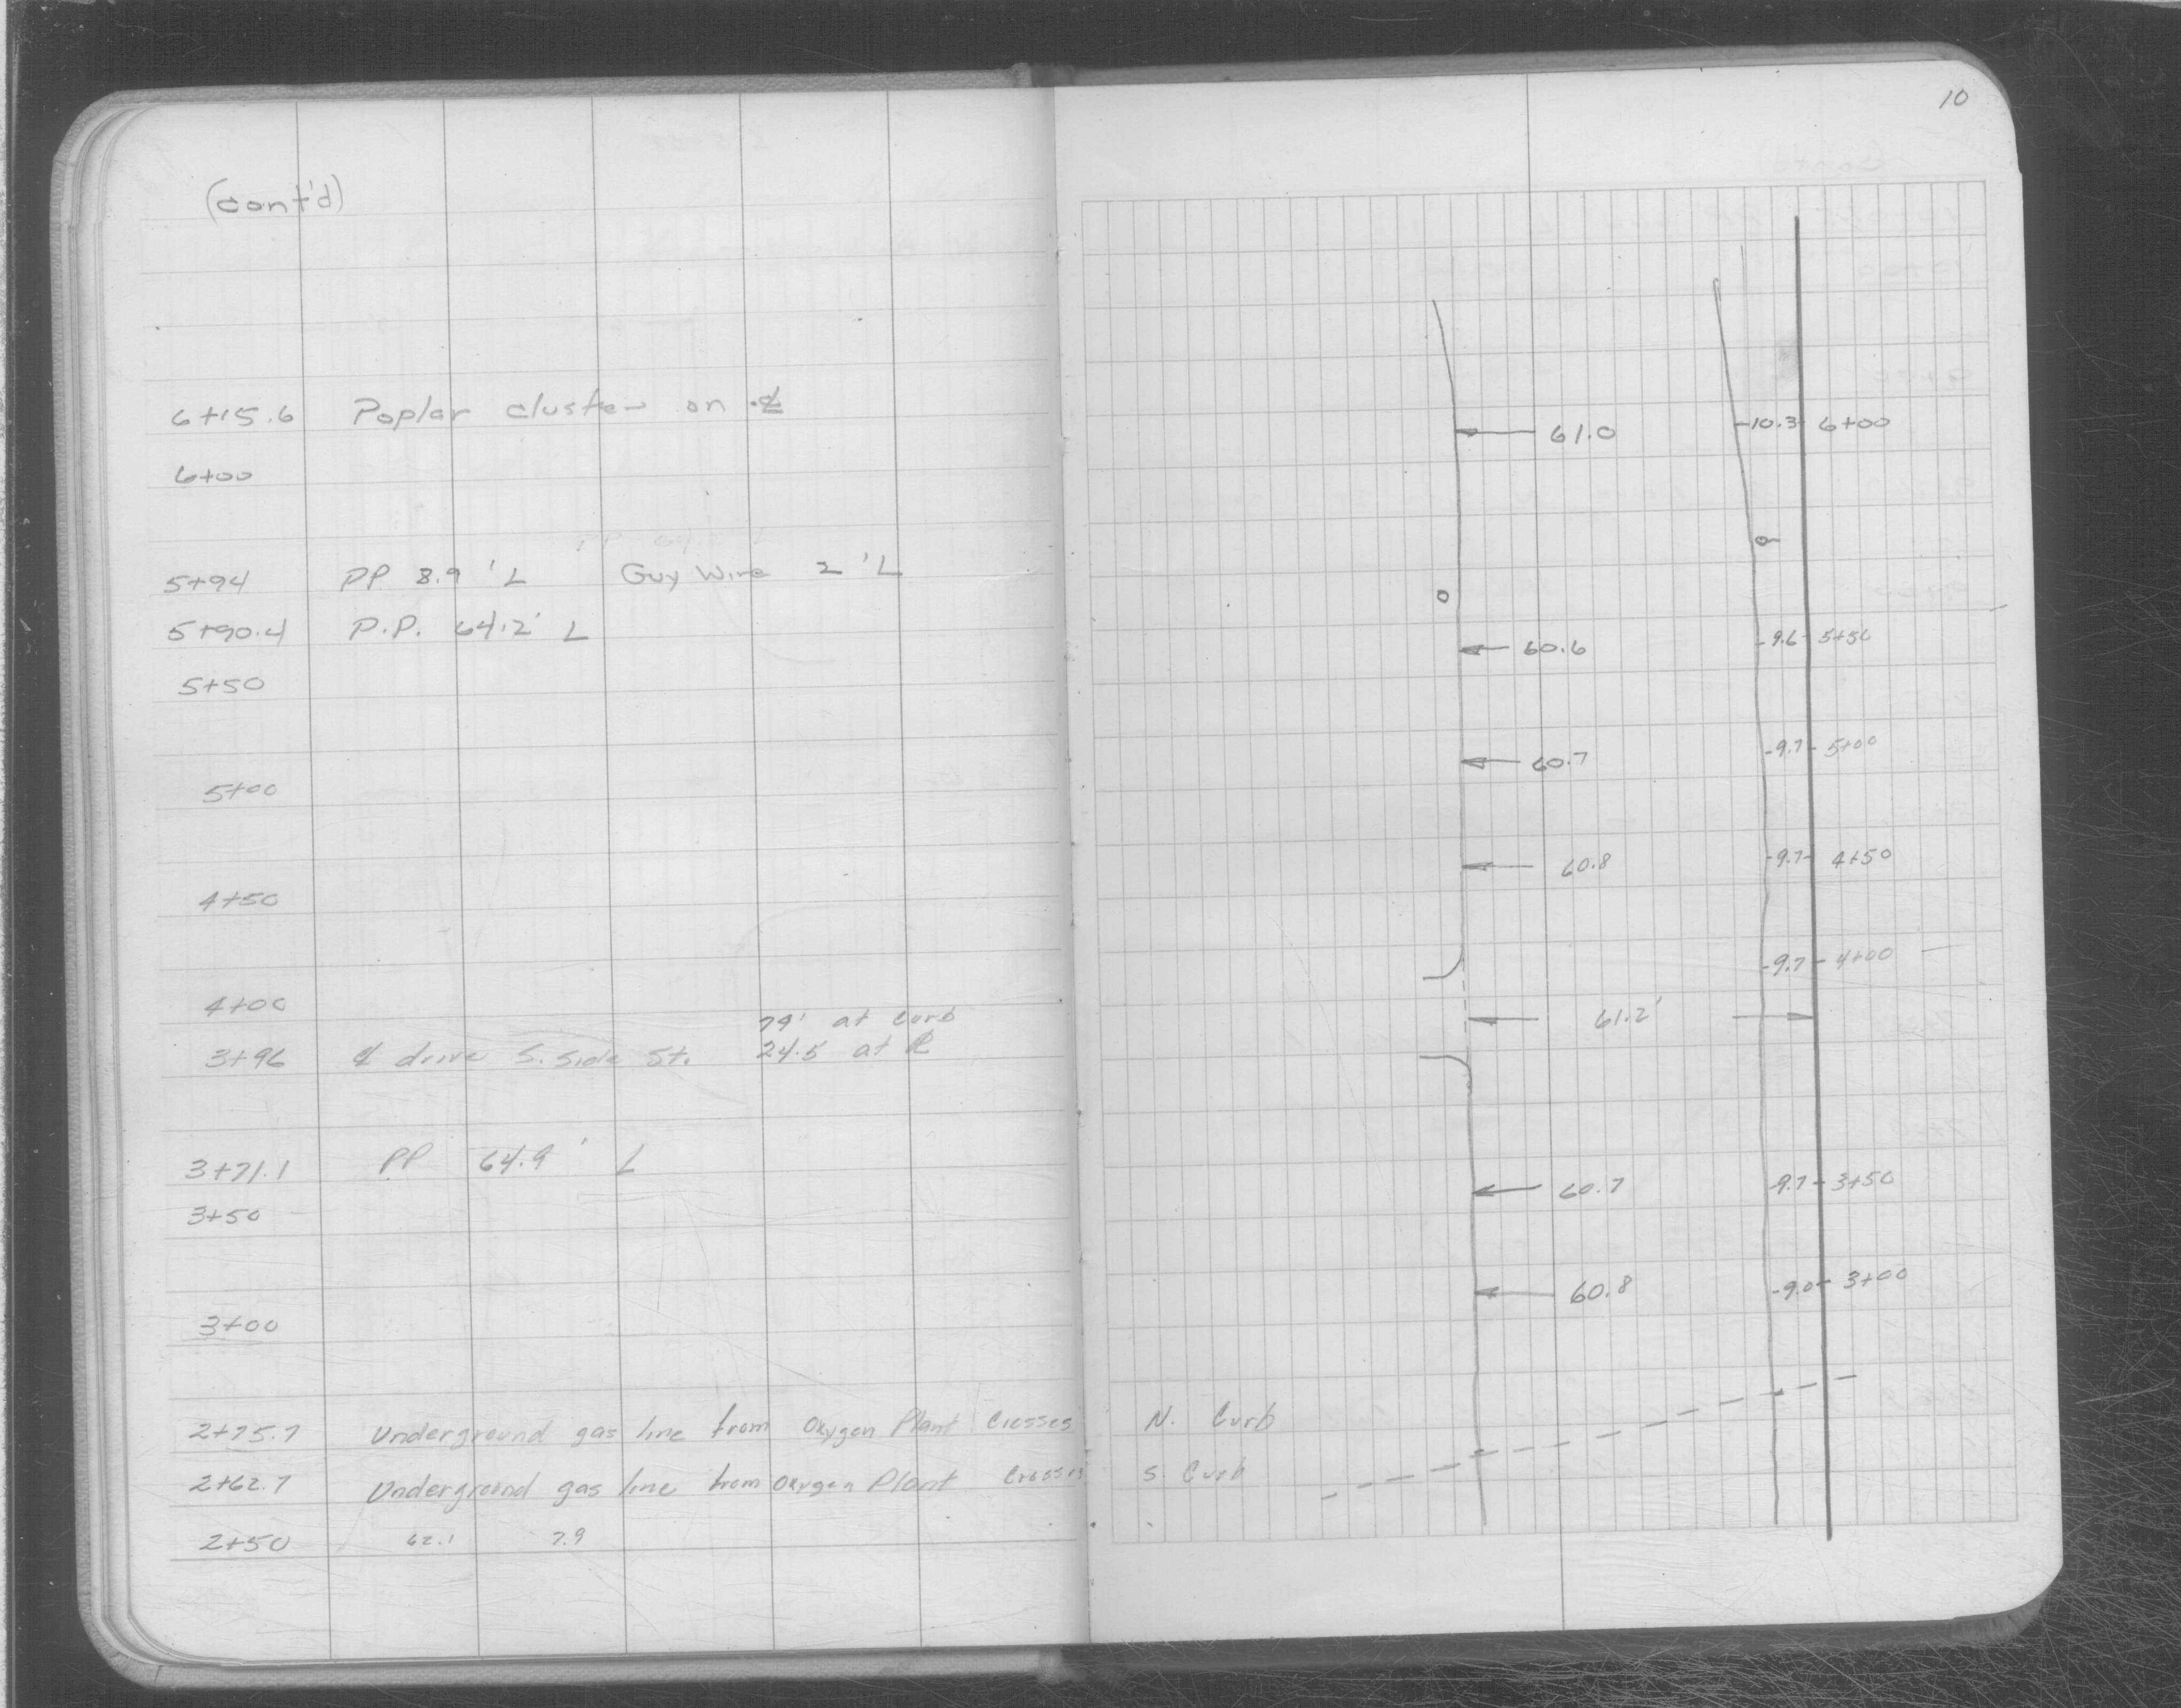 10
(cont'd)
6+15.6 Poplar cluster on ℄
6+00
5+94 PP. 8.9' L Guy Wire 2' L
5+90.4 P.P. 64.2' L
5+50
5+00
4+50
4+00
79' at Curb
3+96 ℄ drive S. Side St. 24.5 at
3+71.1 PP 64.9' L
3+50
3+00
2+75.7 Underground gas line from Oxygen Plant Crosses N. Curb
2+62.7 Underground gas line from Oxygen Plant Crosses S. Curb
2+50 62.1 7.9
61.0 10.3 6+00
60.6 9.6 5+50
60.7 9.7 5+00
60.8 9.7 4+50
9.7 4+00
61.2'
60.7 9.7 3+50
60.8 9.0 3+00